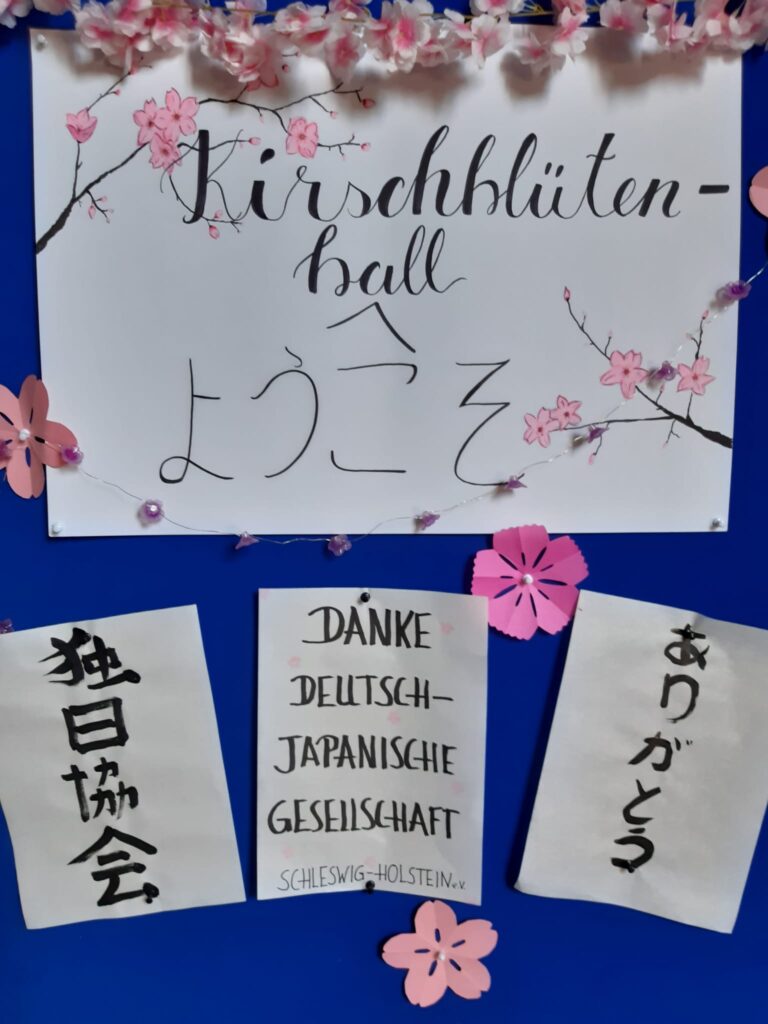 Kirschblüten-
ball
へ
ようこそ
独日協会
DANKE
DEUTSCH-
JAPANISCHE
GESELLSCHAFT
SCHLESWIG-HOLSTEIN e.V.
ありがとう